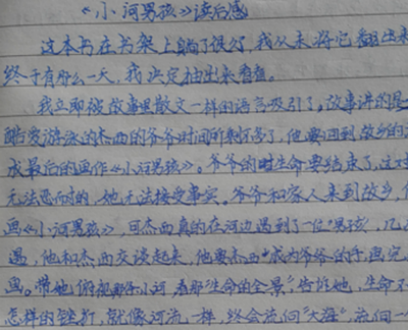 《小河男孩》读后感
这本书在书架上躺了很久,我从未将它翻出来
终于有那么一天,我决定抽出来看看。
我立即被故事里散文一样的语言吸引了。故事讲的是
酷爱游泳的杰西的爷爷时间所剩不多了,他要回到故乡的
成最后的画作《小河男孩》。爷爷的生命要结束了,这对
无法忍耐的,她无法接受事实。爷爷和家人来到故乡,
画《小河男孩》,可杰西真的在河边遇到了一位"男孩",几
遇,他和杰西交谈起来,他要杰西"成为爷爷的手"画完
画。带她俯视那条小河,看那"生命的全景",告诉她,生命不
怎样的挫折,就像河流一样,终会流向"大海",流向一